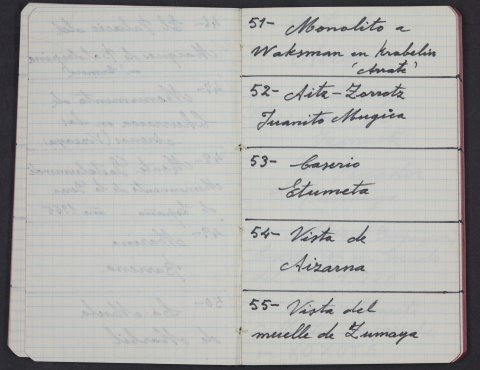 51- Monolito a
Waksman en Krabelin
(Arrate)
52- Aitz-Zorrotz
Juanito Mugica
53- Caserio
Etumeta
54- Vista de
Aizarna
55- Vista del
muelle de Zumaya